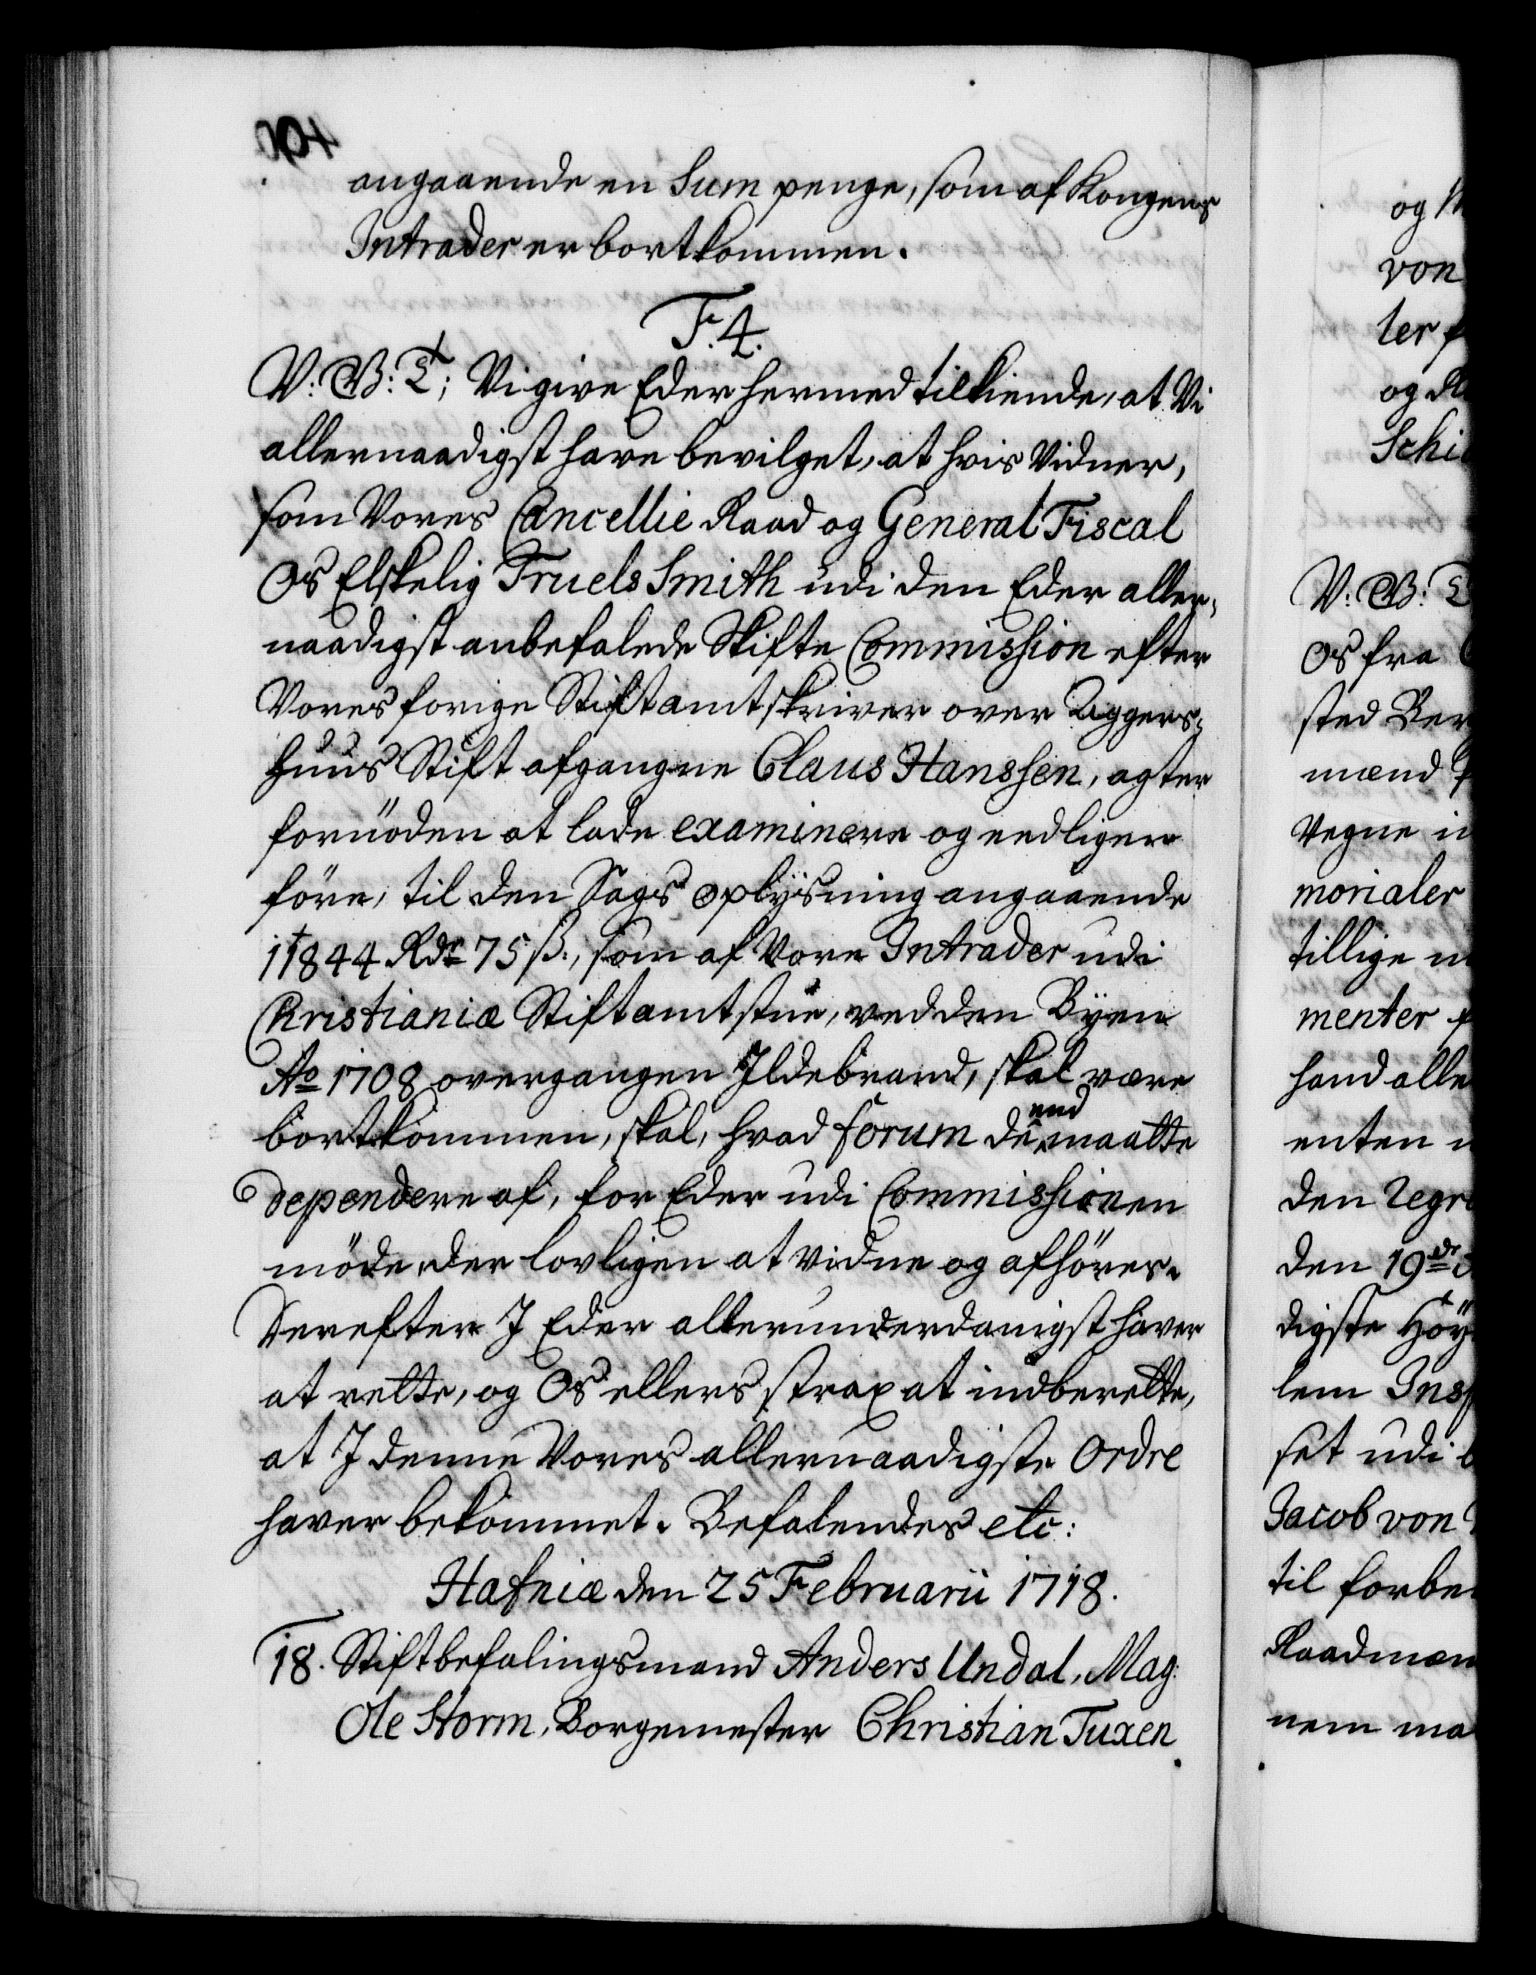 angaaende en Sum penge, som af Kongens
Intrader er bortkommen.
F. 4.
V: G: T; Vi give Eder hermed tilkiende, at Vi
allernaadigst have bevilget, at hvis Vidner,
som Vores Cancellie Raad og General Fiscal
Os Elskelig Truels Smith udi den Eder aller-
naadigst anbefalede Skifte Commission efter
Vores forige Stiftamtskriver over Aggers-
huus Stift afgangne Claus Hanssen, agter
fornöden at lade examinere og eedligen
före, til den Sags oplysning angaaende
11844 Rdr 75 ß., som af Vore Intrader udi
Christianiæ Stiftamtstue, ved den Byen
Ao 1708 overgangen Ildebrand, skal være
bortkommen, skal, hvad forum de end maatte
dependere af, for Eder udi Commissionen
möde, der lovligen at vidne og afhöres.
Derefter I Eder allerunderdanigst haver
at rette, og Os ellers strax at indberette,
at I denne Vores allernaadigste Ordre
haver bekommet. Befalendes etc:
Hafniæ den 25 Februarii 1718.
18. Stiftbefalingsmand Anders Undal, Mag:
Ole Storm, Borgemester Christian Tuxen
og
von
ter
og
V: G: T
Os fra
sted Ber
mænd
Vegne
morialer
tillige
menter
hand alle
enten
den
den 19de
digste Höy
lem Insp
set udi
Jacob von
til forbe
Raadmæn
nem ma